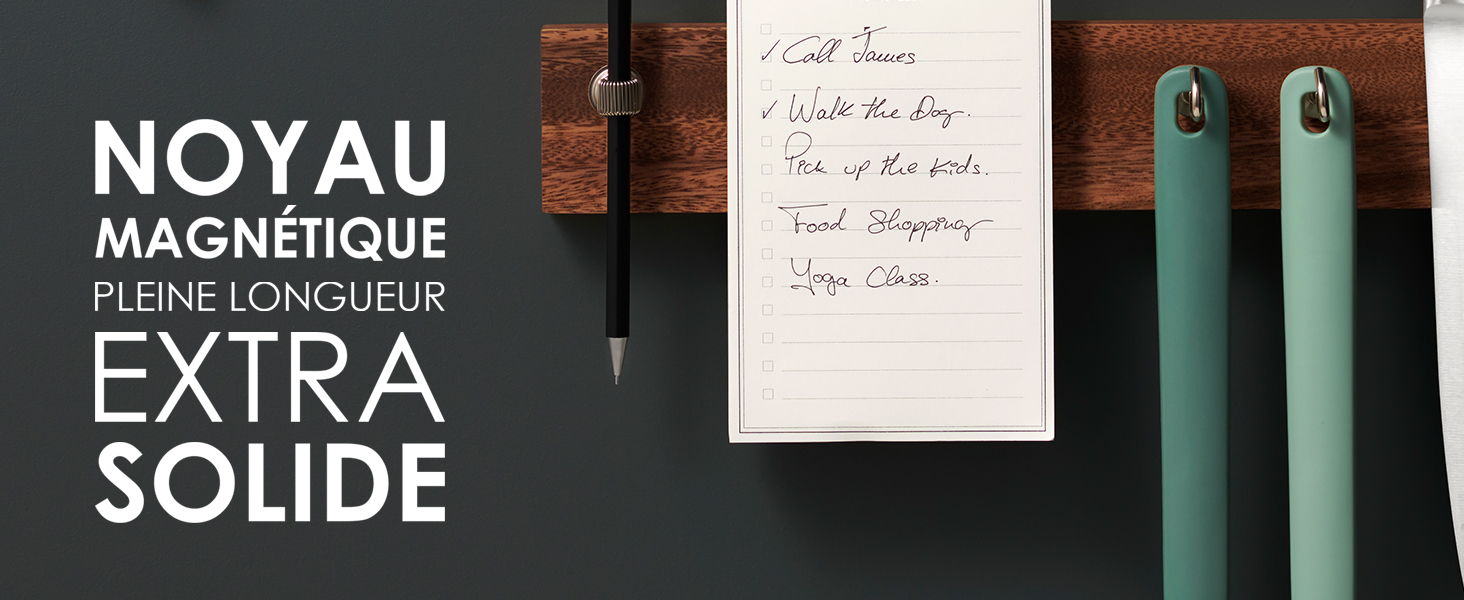 NOYAU
MAGNÉTIQUE
PLEINE LONGUEUR
EXTRA
SOLIDE
Call James
Walk the Dog.
Pick up the Kids.
Food Shopping
Yoga Class.